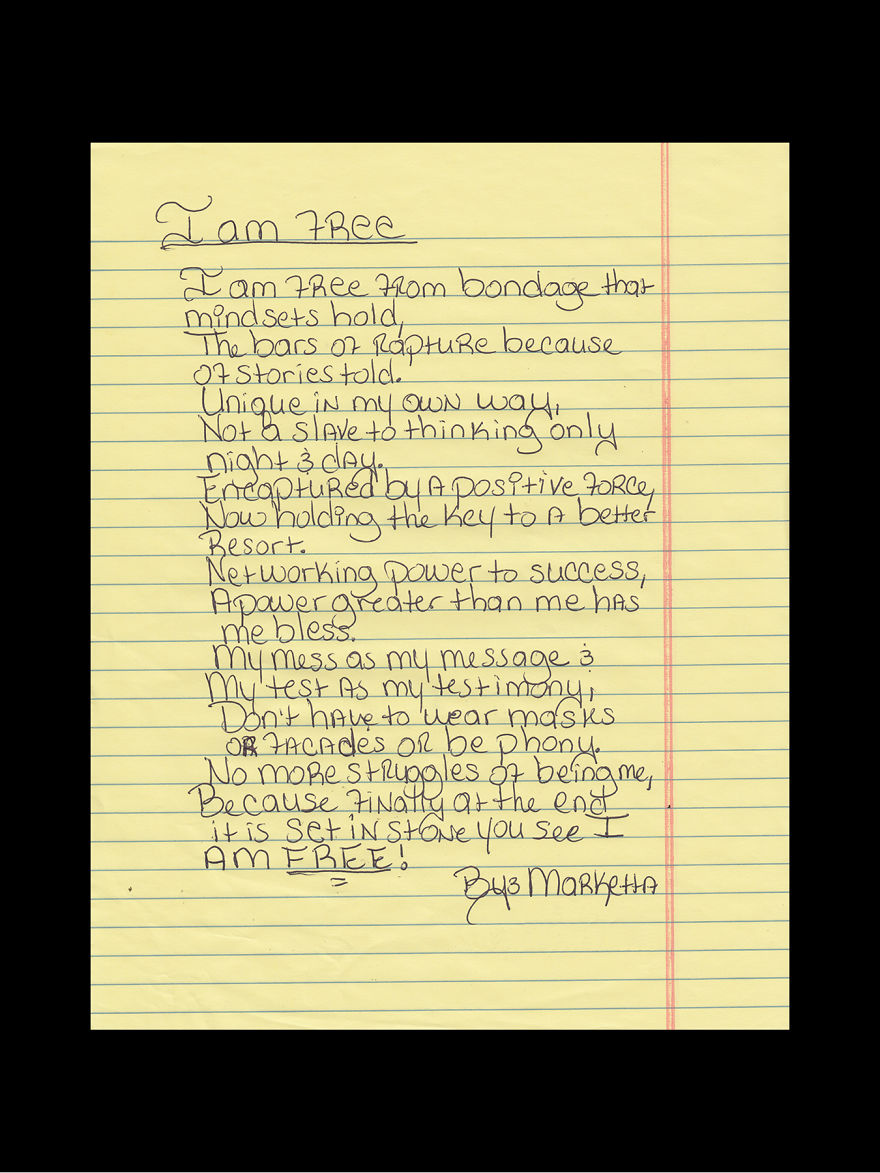 I am FRee
I am FRee FRom bondage that
mindsets hold,
The bars of RaptuRe because
of stories told.
Unique iN my owN way,
Not a slAve to thinking only
night & dAy.
EncaptuRed by A positive foRce,
Now holding the key to A better
Resort.
Networking power to success,
A power greater than me hAs
me bless.
My mess as my message &
My test As my testimony,
Don't hAve to wear masks
OR fACAdes OR be phony.
No moRe stRuggles of being me,
Because fiNally at the end
it is set iN stoNe you see I
AM FREE!
By: MaRkettA